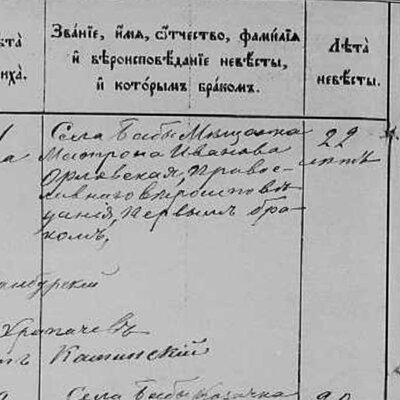 ѣта
иха.
Званіе, имя, отчество, фамилія
и вѣроисповѣданіе невѣсты,
и которымъ бракомъ.
Лѣта
невѣсты.
Села Бабы Мѣщанка
Матрона Иванова
Орловская, Правос-
лавнаго вѣроисповѣ-
данія, Первымъ бра-
комъ,
22
лѣтъ
Храпачевъ
Кашинскій
Села Бабы Казачка
20